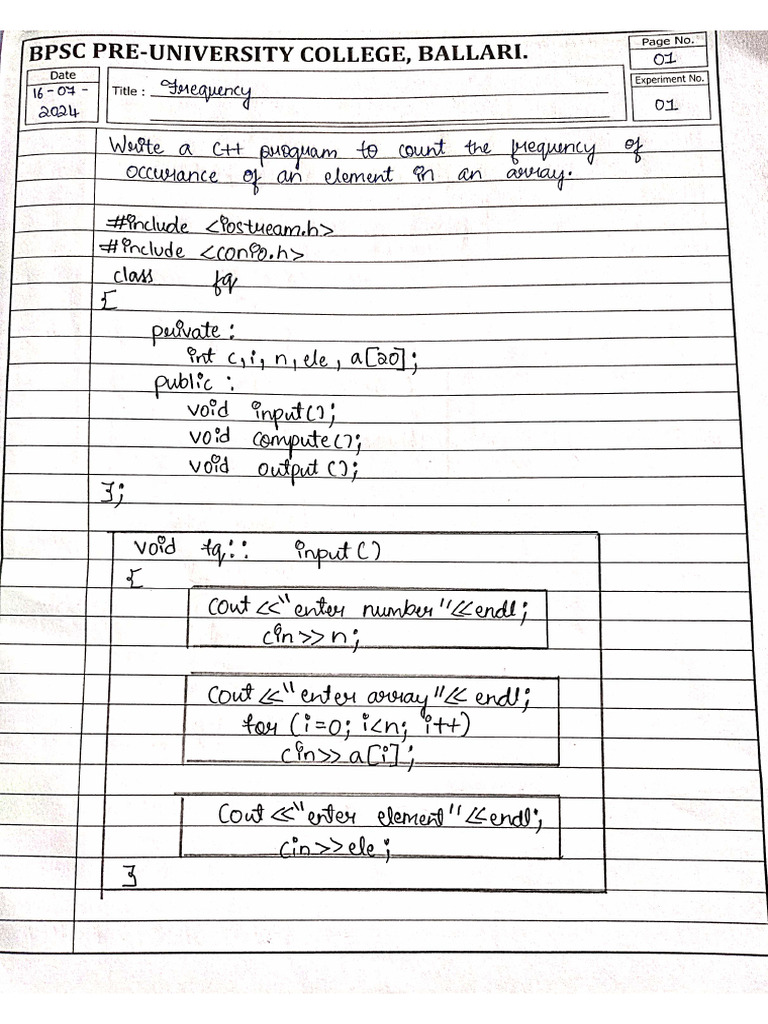 BPSC PRE-UNIVERSITY COLLEGE, BALLARI.
Page No.
01
Date
16-07-
2024
Title : Frequency
Experiment No.
01
Write a C++ program to count the frequency of
occurance of an element in an array.
#include <iostream.h>
#include <conio.h>
class fq
{
private :
int c, i, n, ele, a[20];
public :
void input();
void compute();
void output();
};
void fq:: input()
{
Cout <<"enter number"<<endl;
cin>>n;
Cout <<"enter array"<< endl;
for (i=0; i<n; i++)
cin>>a[i];
Cout <<"enter element"<<endl;
cin>>ele;
}